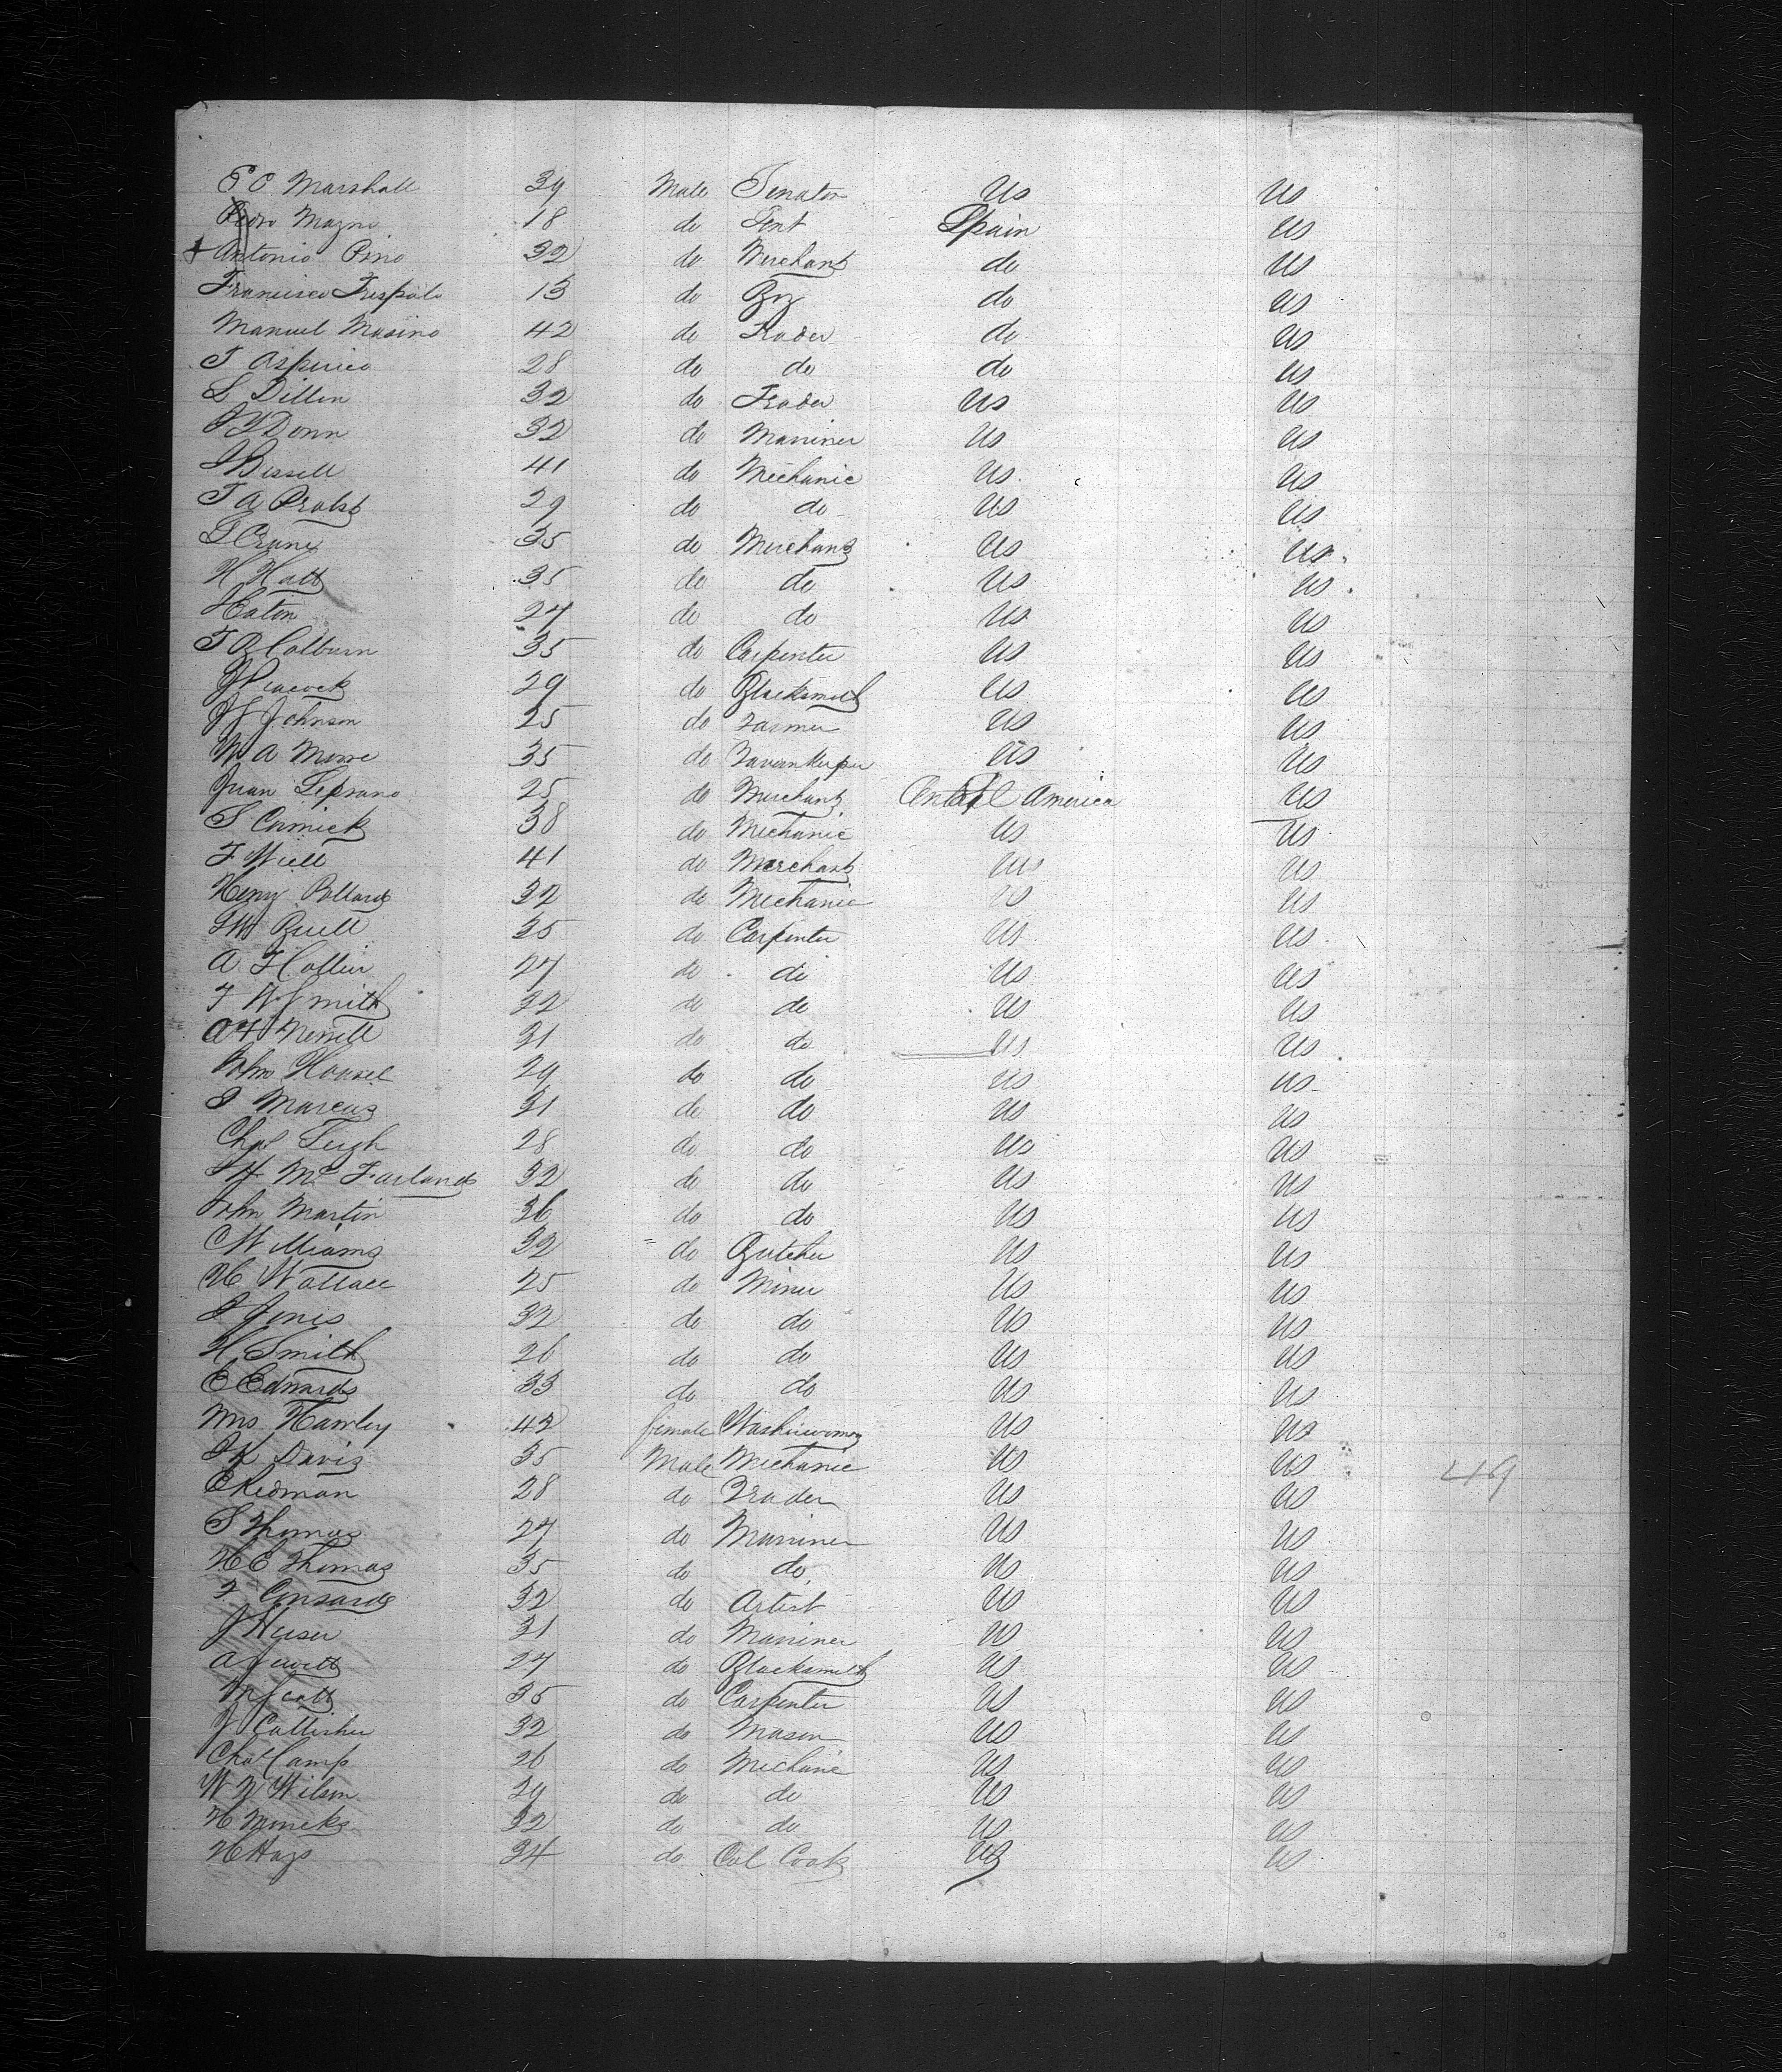 E C Marshall 39 Male Senator US US
Pedro Magno 18 do Gent Spain US
+ Antonio Pino 32 do Merchant do US
Francisco Trespalo 13 do Boy do US
Manuel Masino 42 do Trader do US
T Asperico 28 do do do US
L Dillon 32 do Trader US US
Donn 32 do Mariner US US
J Bissell 41 do Mechanic US US
T A Probst 29 do do US US
T Crane 35 do Merchant US US
H Hatt 35 do do US US
Eaton 27 do do US US
Colburn 35 do Carpenter US US
J Peacock 29 do Blacksmith US US
J J Johnson 25 do Farmer US US
W A Moore 35 do Tavernkeeper US US
Juan Seprano 25 do Merchant Central America US
S Cormick 38 do Mechanic US US
F Will 41 do Merchant US US
Henry Pollard 32 do Mechanic US US
Buell 35 do Carpenter US US
A Hollier 27 do do US US
F W Smith 32 do do US US
Merrill 31 do do US US
John Housel 29 do do US US
S Marcus 31 do do US US
Chas Leigh 28 do do US US
S H McFarland 32 do do US US
John Martin 36 do do US US
C Williams 32 do Butcher US US
H Wallace 25 do Miner US US
S Jones 32 do do US US
H Smith 26 do do US US
E Edwards 33 do do US US
Mrs Hawley 42 female Washerwoman US US
J K Davis 35 Male Mechanic US US 49
E Redman 28 do Trader US US
S Thomas 27 do Mariner US US
H E Thomas 35 do do US US
F Consard 32 do Artist US US
J Weiser 31 do Mariner US US
A Jewett 27 do Blacksmith US US
M Scott 35 do Carpenter US US
J Callisher 32 do Mason US US
Chas Camp 26 do Mechanic US US
W W Wilson 29 do do US US
H Mineks 32 do do US US
H Hays 34 do Col Cook US US